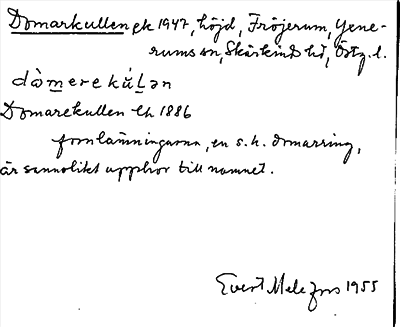 Domarkullen ek 1947, höjd, Fröjerum, Gene-
rums sn, Skärkinds hd, Östg. l.
dò̀merekúlən
Domarekullen Ch 1886
fornlämningarna, en s.k. domarring,
är sannolikt upphov till namnet.
Evert Melefors 1955